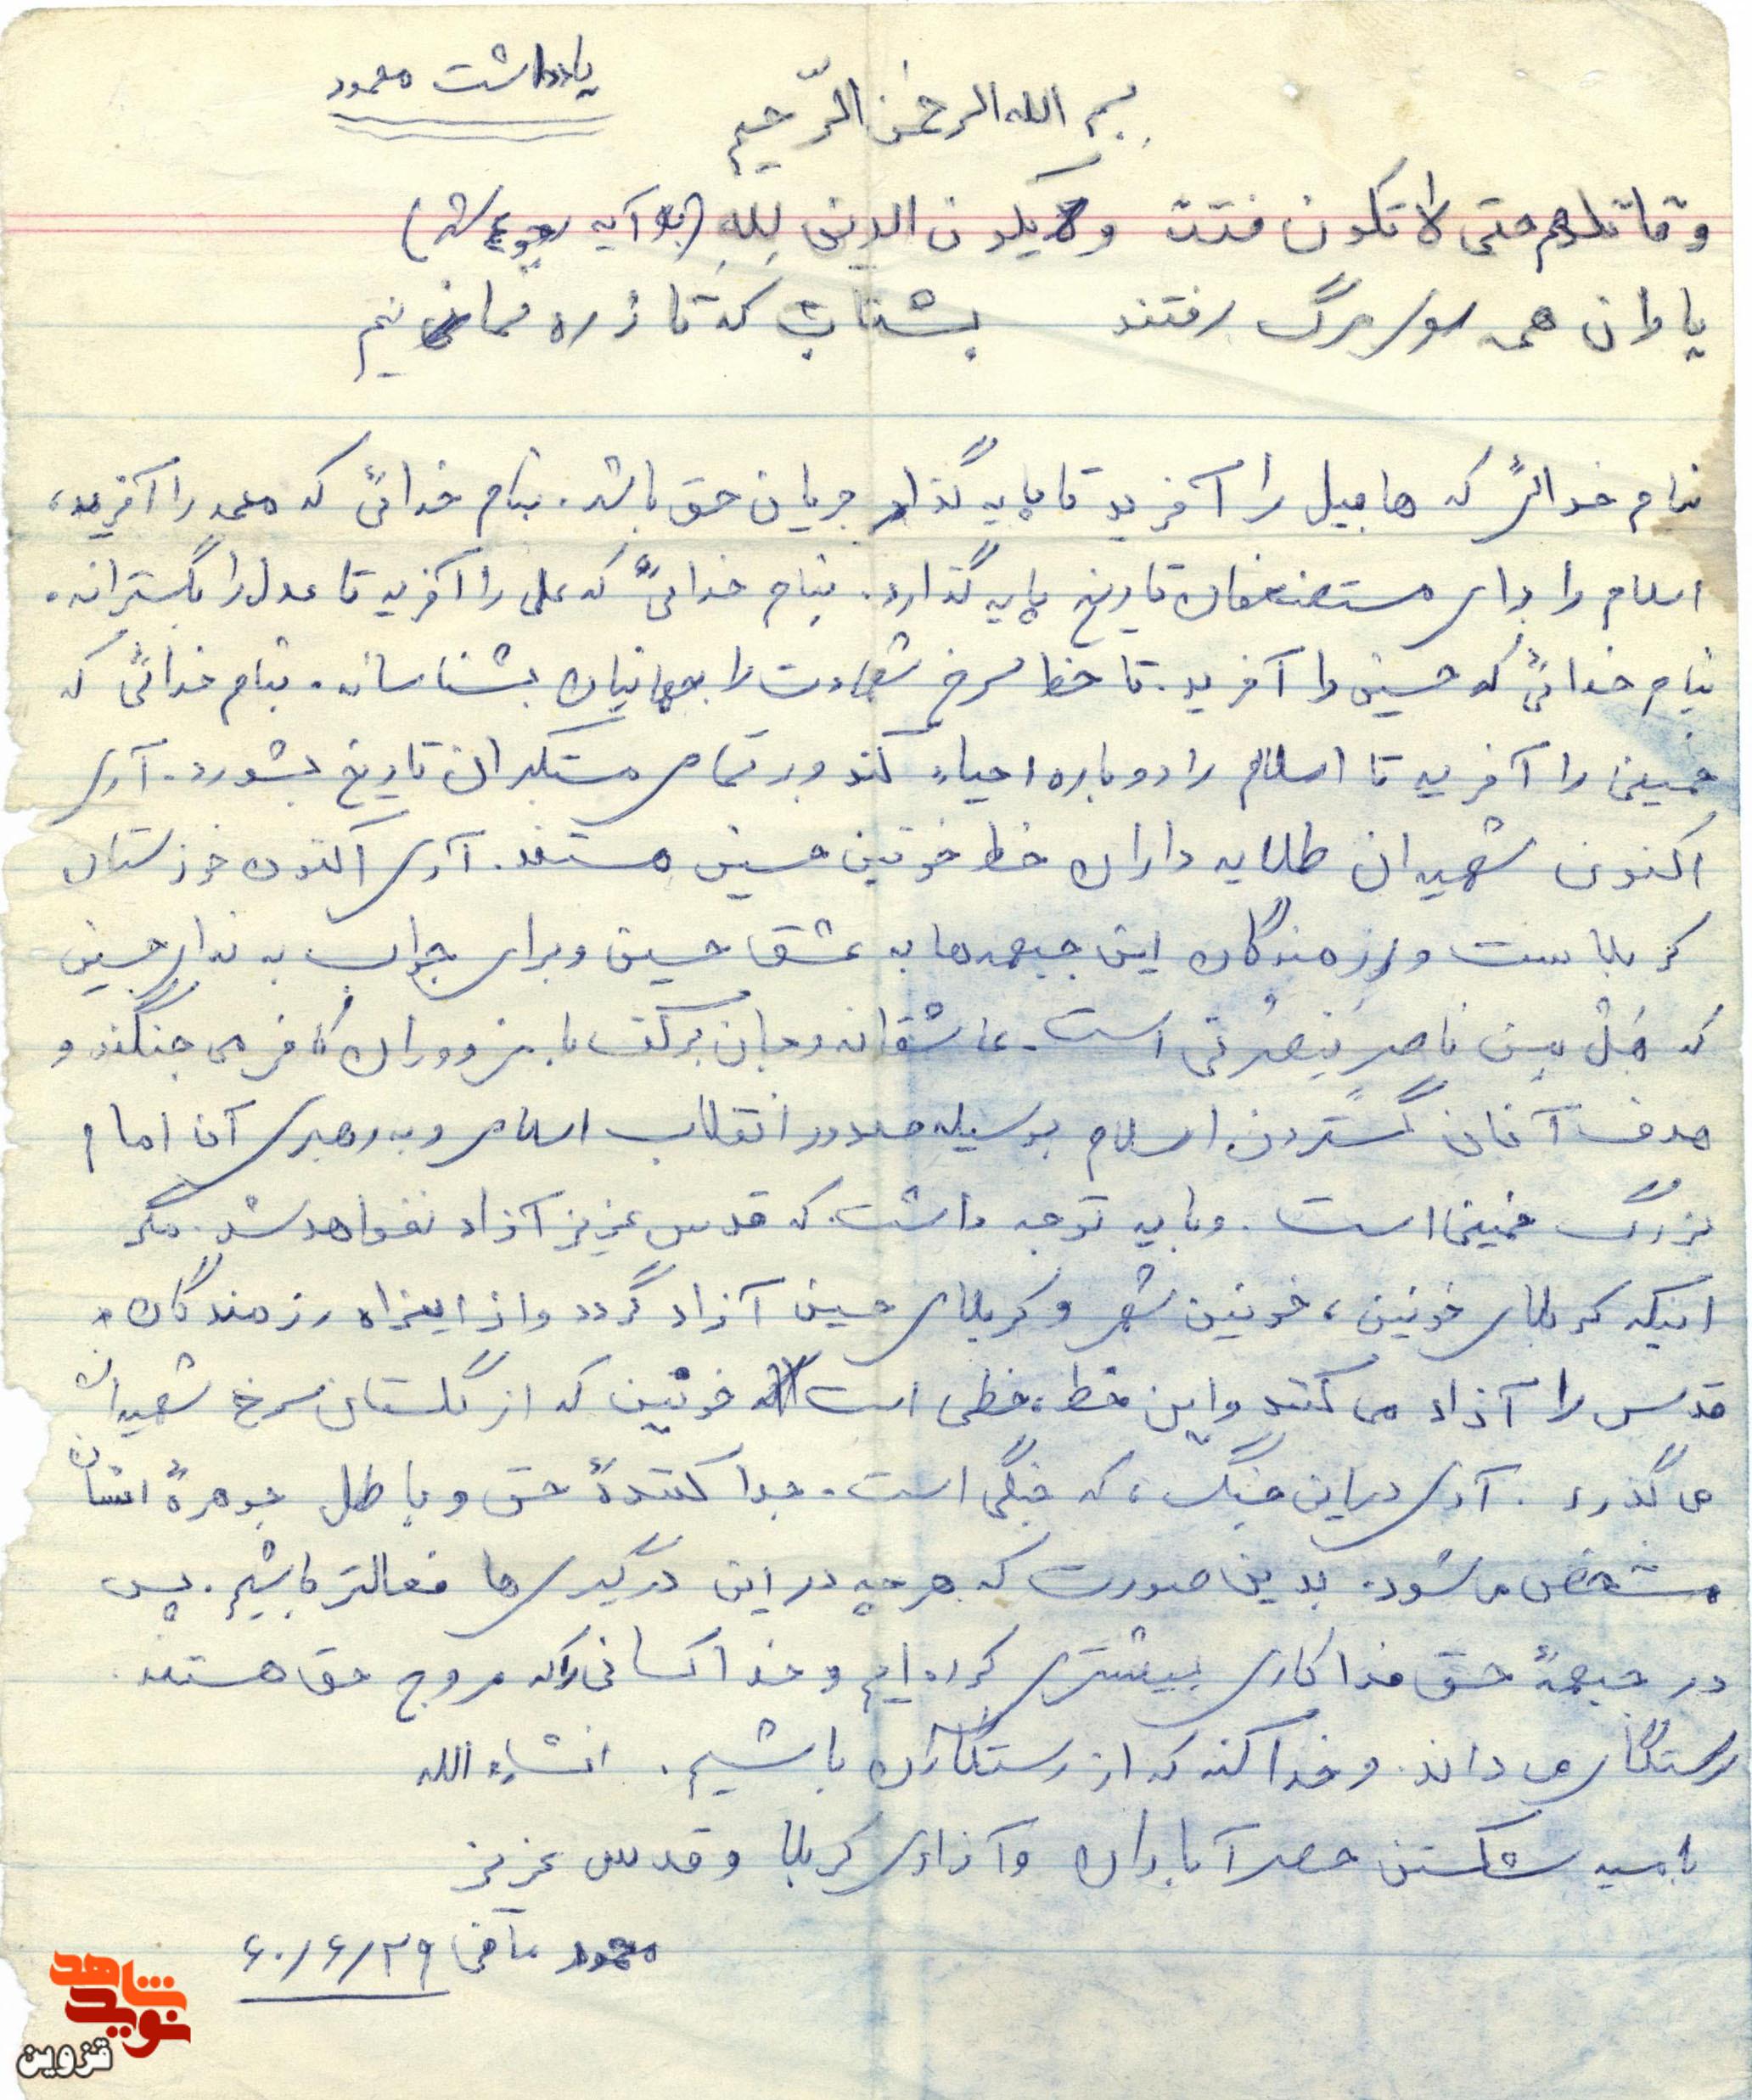 یادداشت محمود
بسم الله الرحمن الرّحیم
و قاتلوهم حتی لا تکون فتنة و یکون الدین لِلهِ (به آیه رجوع شد)
یاران همه سوی مرگ رفتند بشتاب که تا ز ره نمانیم
بنام خدائی که هابیل را آفرید تا پایه گذار جریان حق باشد. بنام خدائی که محمد را آفرید،
اسلام را برای مستضعفان تاریخ پایه گذارد. بنام خدائی که علی را آفرید تا عدل را بگستراند.
بنام خدائی که حسین را آفرید. تا خط سرخ شهادت را بجهانیان بشناساند. بنام خدائی که
خمینی را آفرید تا اسلام را دوباره احیاء کند و بر تمامی مستکبران تاریخ بشورد. آری
اکنون شهیدان طلایه داران خط خونین حسین هستند. آری اکنون خوزستان
کربلاست و رزمندگان این جبهه‌ها به عشق حسین و برای جواب به ندای حسین
که هَل مِن ناصرٍ یَنصُرنی است. عاشقانه و جان برکف با مزدوران کافر می جنگند و
هدف آنان گستردن اسلام بوسیله صدور انقلاب اسلامی و به رهبری آن امام
بزرگ خمینی است. و باید توجه داشت که قدس عزیز آزاد نخواهد شد. مگر
اینکه کربلای خونین، خونین شهر و کربلای حسین آزاد گردد و از اینراه رزمندگان
قدس را آزاد می کنند و این خط، خطی است خونین که از گلستان سرخ شهیدان
می گذرد. آری در این جنگ، که جنگی است. جدا کنندهٔ حق و باطل جوهرهٔ انسان
مشخص می شود. بدین صورت که هر چه در این درگیری ها فعالتر باشیم. پس
در جبههٔ حق فداکاری بیشتری کرده ایم و خدا کسانی را که مروج حق هستند.
رستگار می داند. و خدا کند که از رستگاران باشیم. انشاء الله
بامید شکستن حصر آبادان و آزادی کربلا و قدس عزیز
محمود مافی ۶۰/۶/۲۹
شاهد
نوید
قزوین